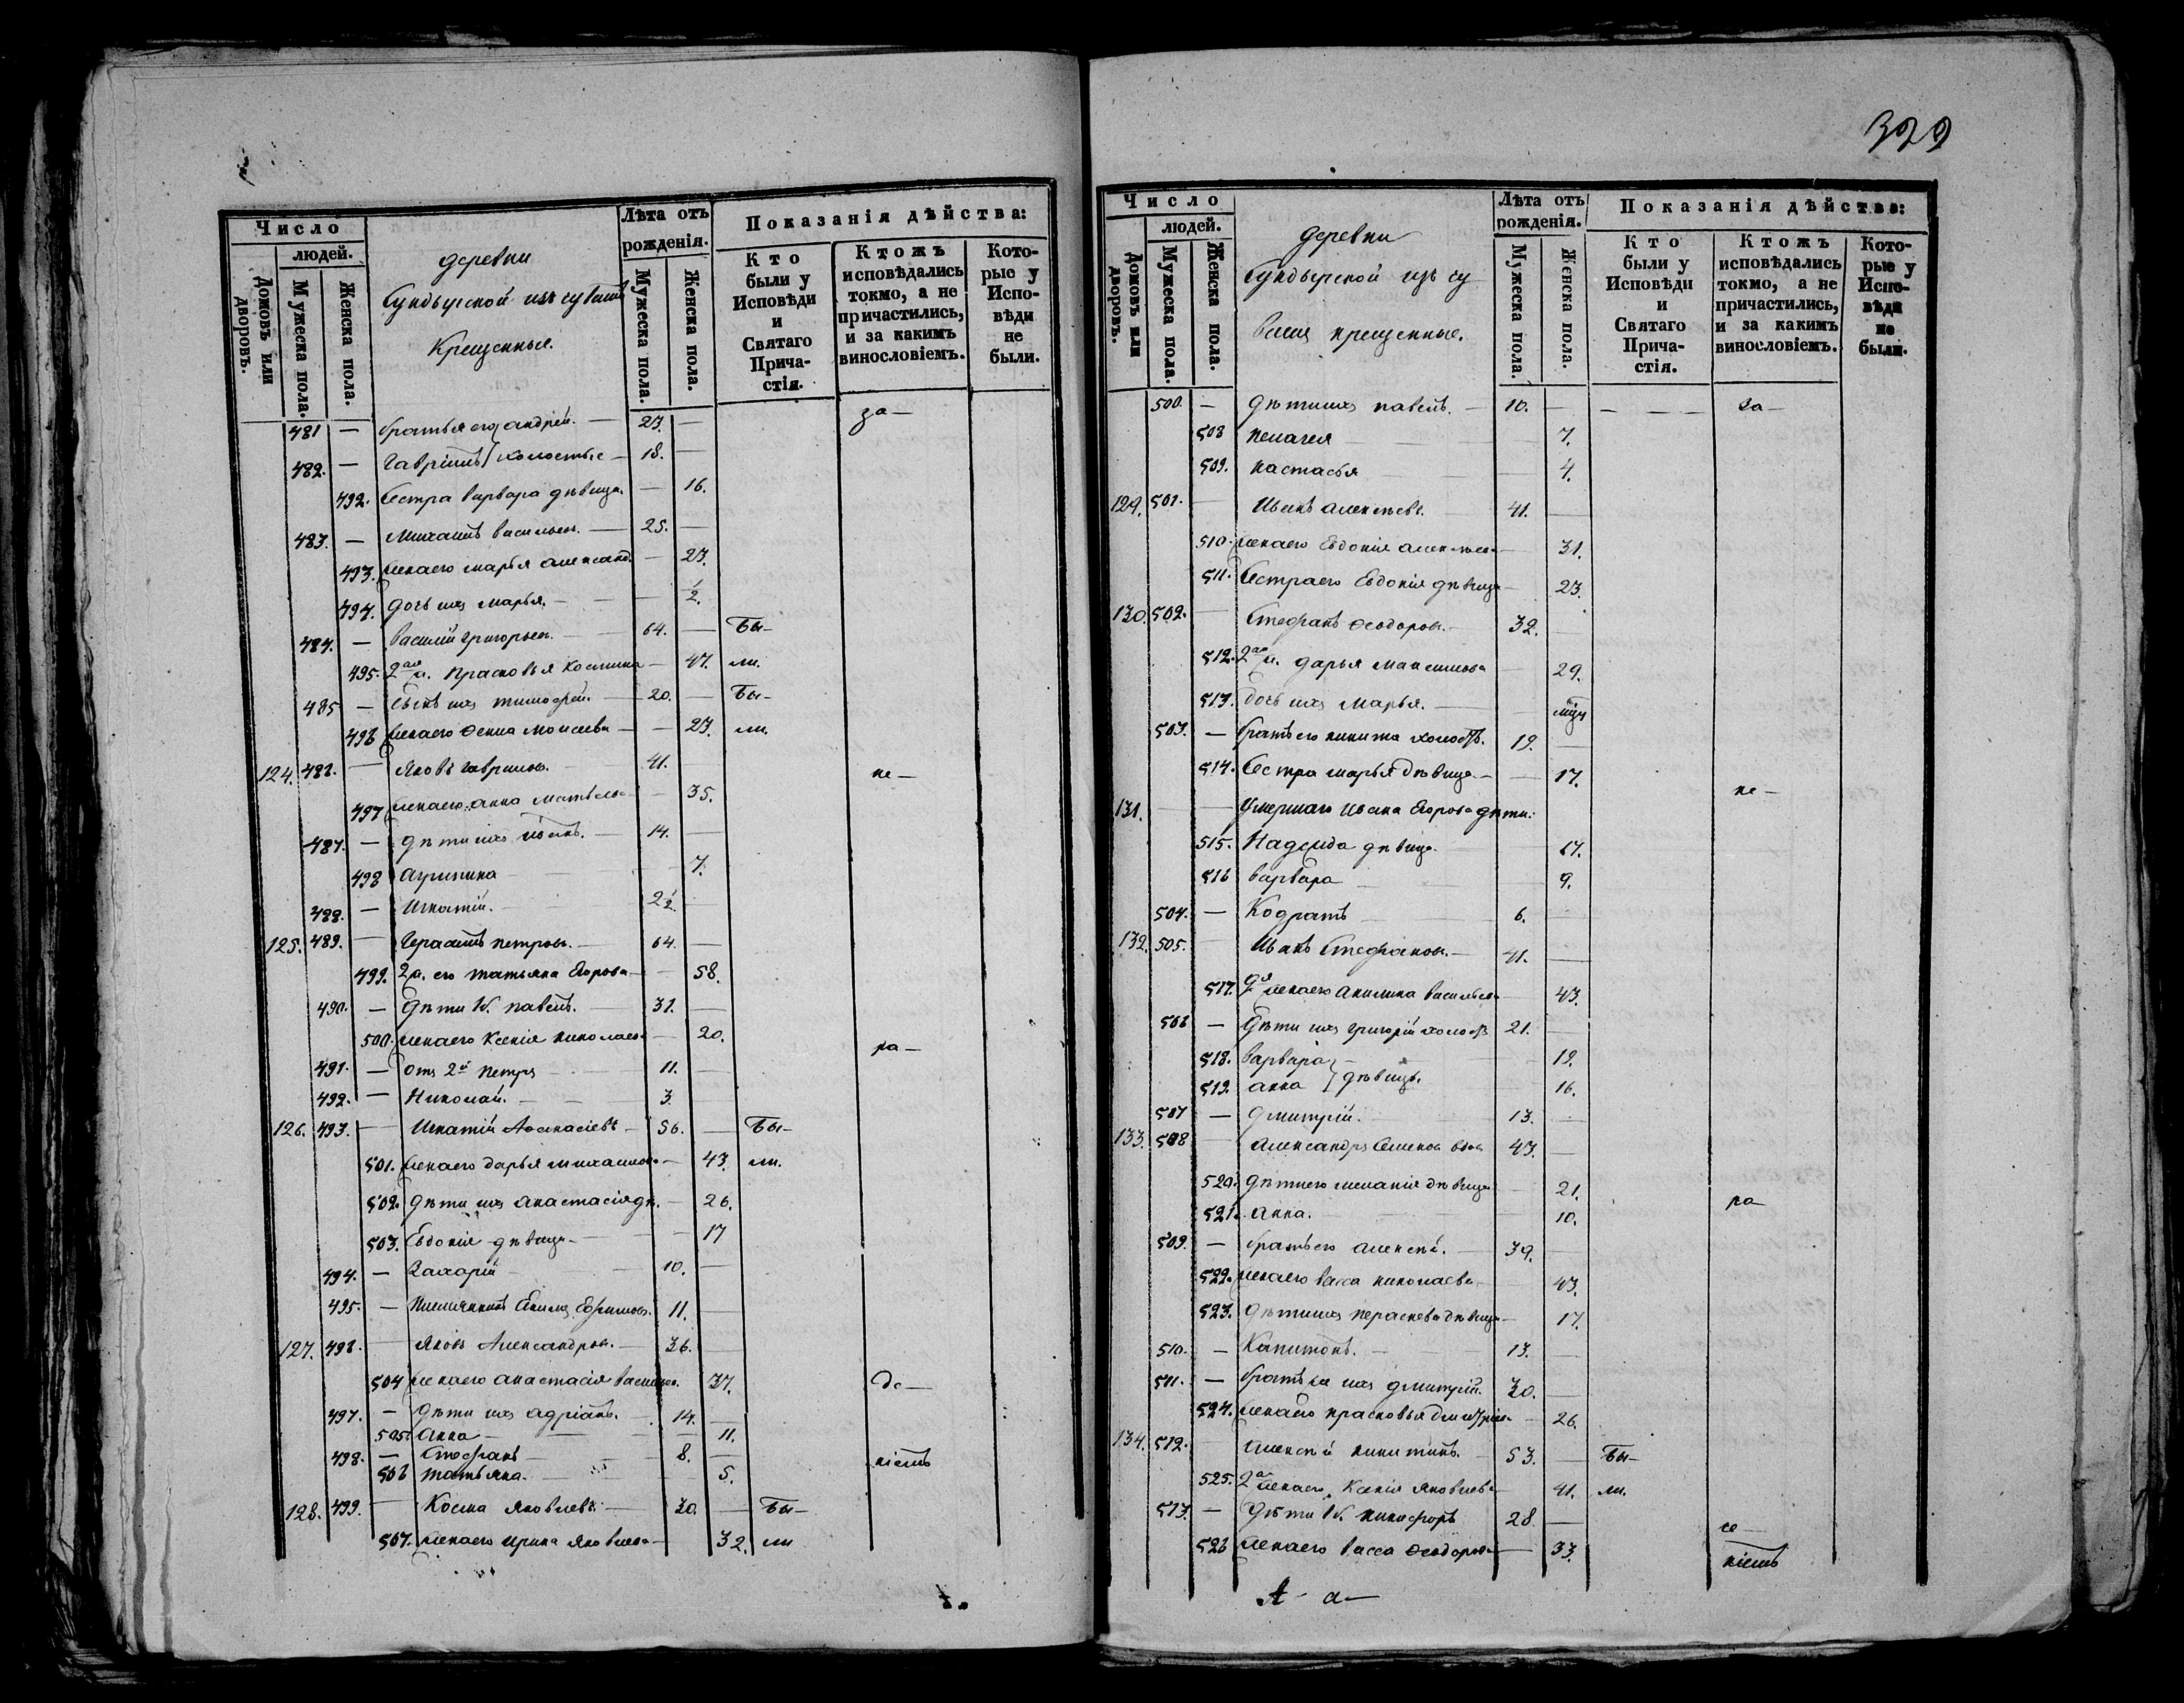 Число
людей.
Домовъ или дворовъ.
Мужеска пола.
Женска пола.
деревни
Сундырской изъ чуваш
Крещенные.
Лѣта отъ
рожденія.
Мужеска пола.
Женска пола.
Показанія дѣйства:
Кто были у Исповѣди и Святаго Причастія.
Ктожъ исповѣдались токмо, а не причастились, и за какимъ винословіемъ.
Которые у Исповѣди не были.
481 — братья его андрей. — 27. — за—
482. — Гавріилъ } холостые — 18. —
492. Сестра варвара дѣвица. — 16.
483. — Михаилъ васильев. — 25. —
493. жена его марья александ. — 27.
494. дочь ихъ марья. — 1/2.
484. — василій григорьев. — 64. — Бы—
495. 2ая ж. прасковья космина — 47. ли.
485 — сынъ ихъ тимофей. — 20. — Бы—
496 жена его Фекла моисеева — 27. ли.
124. 486. — яковъ гаврилов. — 41. не—
497 жена его анна матвѣева — 35.
487. — дѣти ихъ иванъ. — 14. —
498 агрипина — 7.
488. — игнатій. — 2 1/2 —
125. 489. — Герасимъ петров. — 64. —
499. 2 ж. его татьяна Егорова — 58.
490. — дѣти 1й. павелъ. — 31. —
500. жена его Ксенія николаева — 20. ра—
491. — отъ 2й петръ — 11. —
492. — Николай. — 3.
126. 493. — игнатій Афанасіевъ — 56. — Бы—
501. жена его дарья михаилова — 43. ли.
502. дѣти ихъ анастасія дѣ. — 26.
503. Евдокія дѣвица — 17
494. — Захарій — 10. —
495. — племянникъ Ефимов. 11. —
127. 496. — яковъ Александров. — 36.
504 жена его анастасія васильев. 37. де—
497. — дѣти ихъ адріанъ. — 14. —
505. Анна — 11.
498. — Стефанъ — 8. — ніемъ
506 татьяна. — 5.
128. 499. — Косма яковлевъ. — 30. — Бы—
507. жена его ирина яковлева — 32. ли
399
Число
людей.
Домовъ или дворовъ.
Мужеска пола.
Женска пола.
деревни
Сундырской изъ чу
ваш крещенные.
Лѣта отъ
рожденія.
Мужеска пола.
Женска пола.
Показанія дѣйства:
Кто были у Исповѣди и Святаго Причастія.
Ктожъ исповѣдались токмо, а не причастились, и за какимъ винословіемъ.
Которые у Исповѣди не были.
500. — дѣти ихъ павелъ. — 10. — за—
508 пелагея — 7.
509. настасья — 4.
129. 501. — иванъ алексѣевъ. — 41. —
510. жена его Евдокія алексѣева — 31.
511. Сестра его Евдокія дѣвица — 23.
130. 502. — Стефанъ Феодоров. — 32. —
512. 2ая ж. дарья максимова — 29.
513. дочь ихъ марья. —
503. — братъ его никита холостъ. 19. —
514. Сестра марья дѣвица — 17. не—
131. — умершаго ивана Егорова дѣти:
515. Надежда дѣвица. — 17.
516 варвара — 9.
504. — Кодратъ — 6. —
132. 505. — иванъ Стефанов. — 41. —
517. жена его акилина васильева 43.
506 — дѣти ихъ григорій холостъ 21. —
518. варвара } — 19.
519. анна } дѣвицы. 16.
507 — дмитрій. 13. —
133. 508 — александръ Семенов вдов 43. —
520. дѣти его меланія дѣвица 21.
521. анна. — 10. ра
509. — братъ его алексѣй. — 39. —
522. жена его васса николаева — 43.
523. дѣти ихъ параскева дѣвица — 17.
510. — Капитонъ. — 13. —
511. — братъ ихъ дмитрій. 30. —
524. жена его прасковья дмитріев. — 26.
134. 512. алексѣй никитинъ. — 53. — Бы—
525. 2я жена его Ксенія яковлева 41. ли.
513. — дѣти 1й. никифоръ 28. — се—
526 жена его васса Феодорова — 33. ніемъ